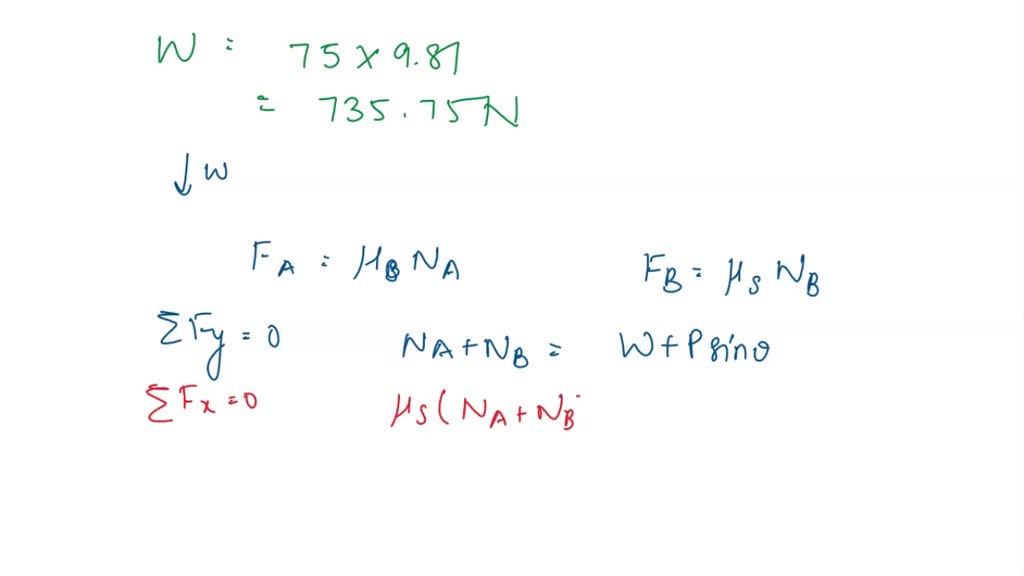 W = 75 x 9.81
= 735.75N
↓ W
F_A = μ_B N_A F_B = μ_S N_B
ΣFy = 0 N_A + N_B = W + P sinθ
ΣFx = 0 μ_S ( N_A + N_B